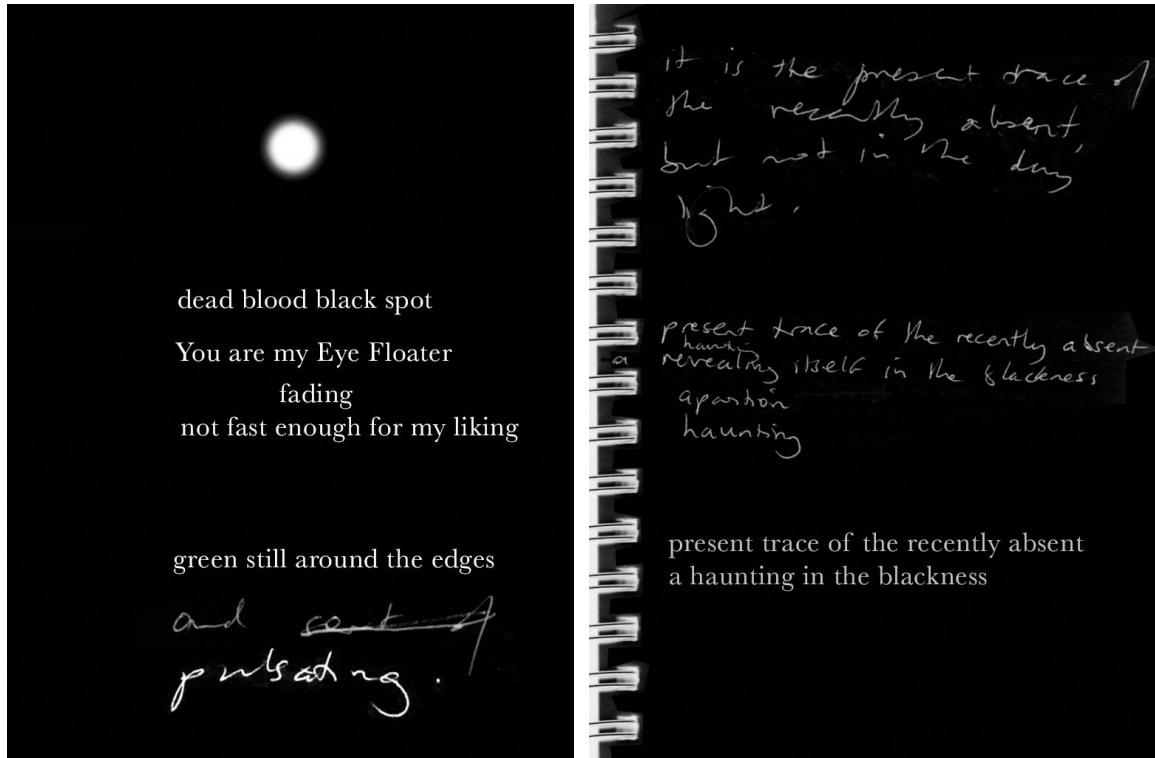 dead blood black spot
You are my Eye Floater
fading
not fast enough for my liking
green still around the edges
and
pulsating.
it is the present trace of
the recently absent,
but not in the day
light.
present trace of the recently absent
haunting
a revealing itself in the blackness
apartion
haunting
present trace of the recently absent
a haunting in the blackness